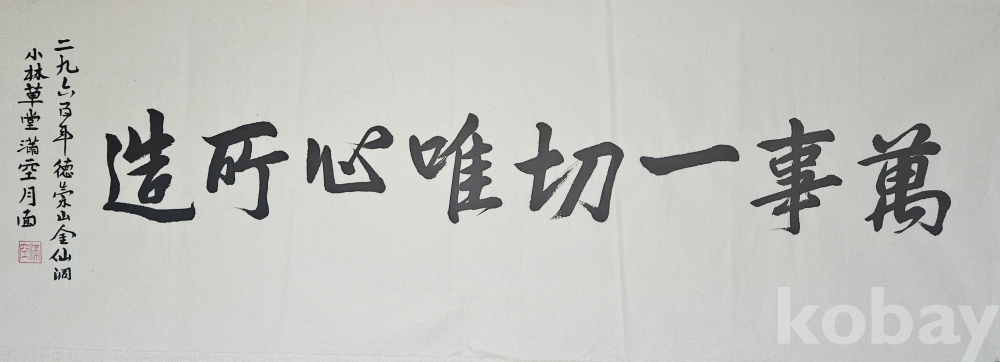 萬事一切唯心所造
二九六百年 德崇山金仙洞
小林草堂 滿空月面
kobay